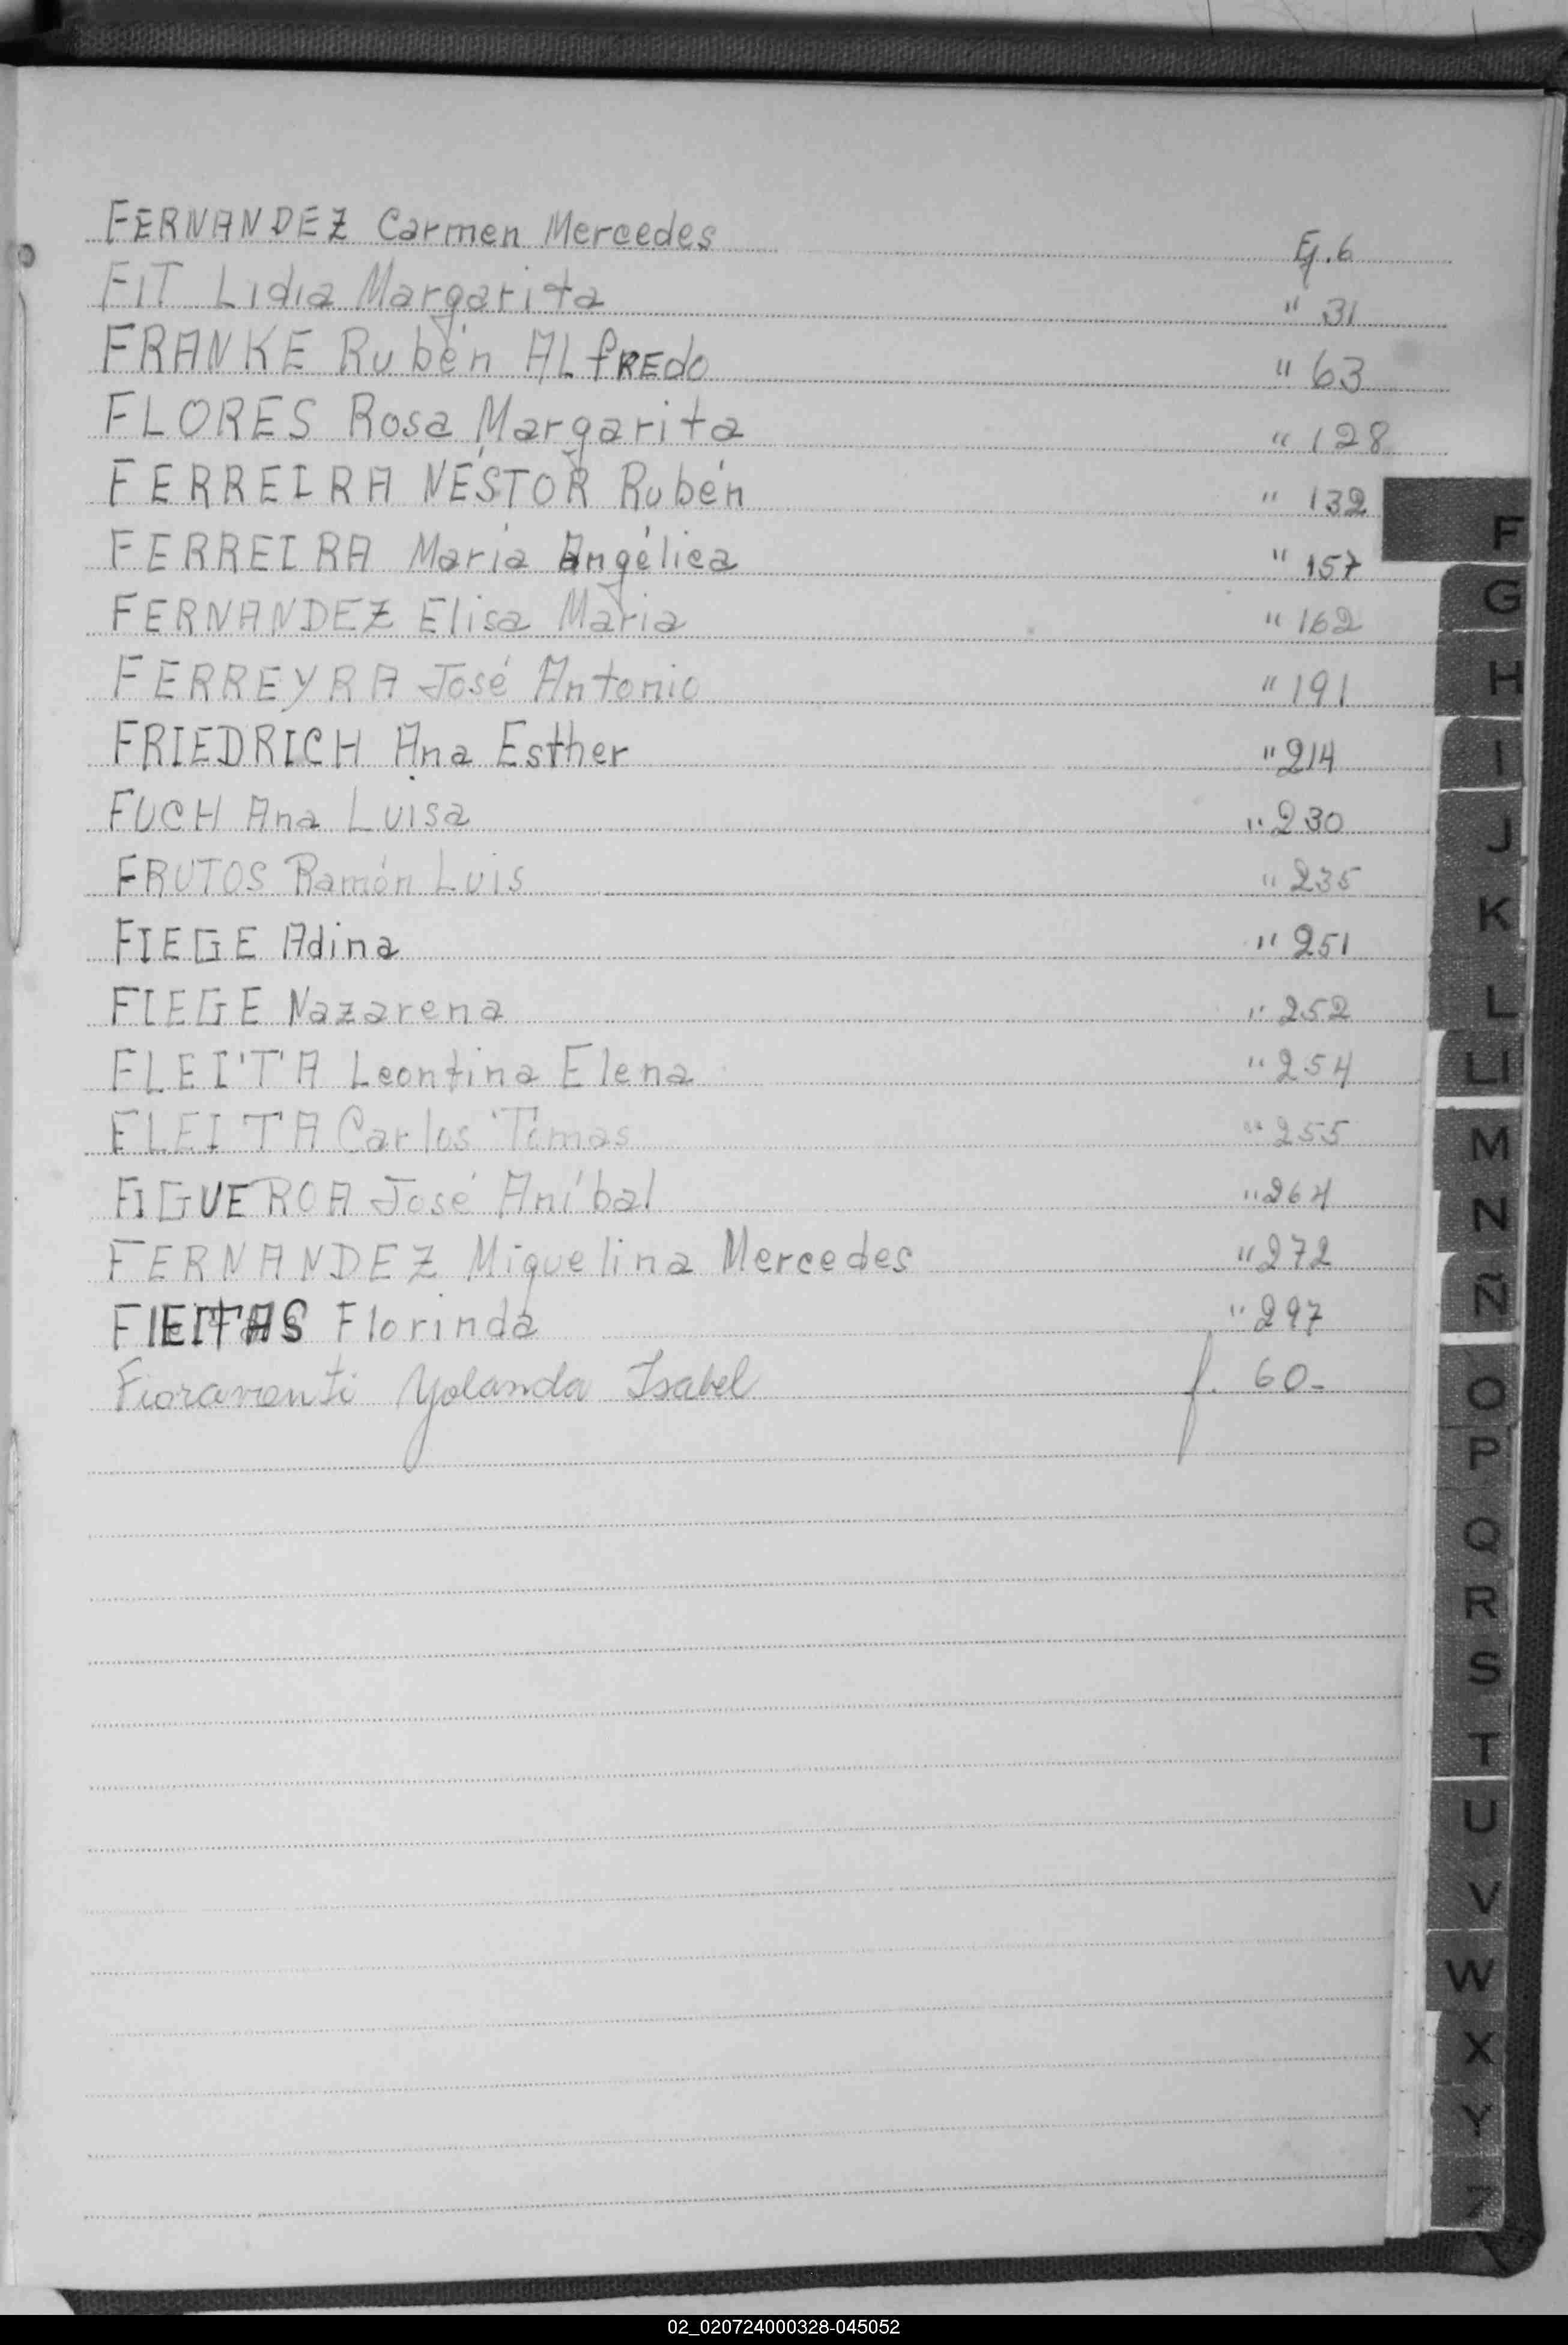 FERNANDEZ Carmen Mercedes Fj. 6
FIT Lidia Margarita " 31
FRANKE Rubén ALfREdo " 63
FLORES Rosa Margarita " 128
FERREIRA NÉSTOR Rubén " 132
FERREIRA María Angélica " 157
FERNANDEZ Elisa María " 162
FERREYRA José Antonio " 191
FRIEDRICH Ana Esther " 214
FUCH Ana Luisa " 230
FRUTOS Ramón Luis " 235
FIEGE Adina " 251
FIEGE Nazarena " 252
FLEITA Leontina Elena " 254
FLEITA Carlos Tomas " 255
FIGUEROA José Aníbal " 264
FERNANDEZ Miquelina Mercedes " 272
FlEITAS Florinda " 297
Fioravanti Yolanda Isabel f. 60-
F
G
H
I
J
K
L
Ll
M
N
Ñ
O
P
Q
R
S
T
U
V
W
X
Y
Z
02_020724000328-045052